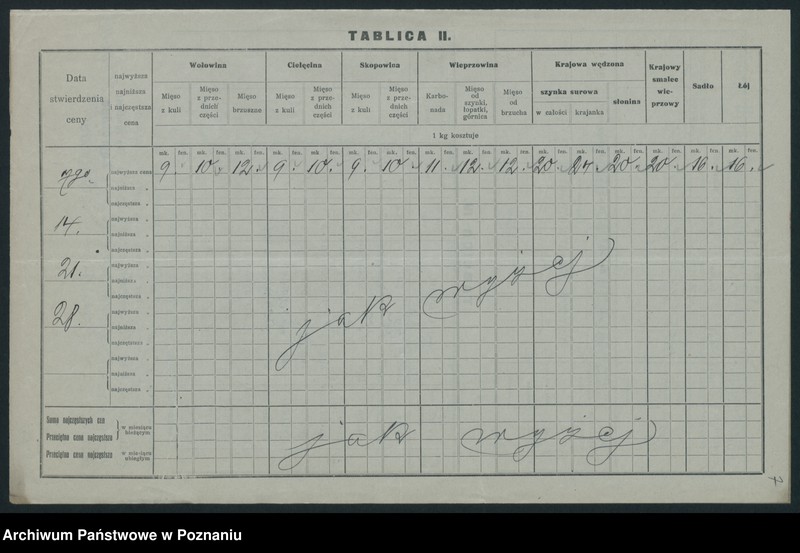 TABLICA II.
Data stwierdzenia ceny
najwyższa najniższa i najczęstsza cena
Wołowina
Cielęcina
Skopowina
Wieprzowina
Krajowa wędzona
Krajowy smalec wie-przowy
Sadło
Łój
Mięso z kuli
Mięso z prze-dnich części
Mięso brzuszne
Mięso z kuli
Mięso z prze-dnich części
Mięso z kuli
Mięso z prze-dnich części
Karbo-nada
Mięso od szynki, łopatki, górnica
Mięso od brzucha
szynka surowa
w całości
krajanka
słonina
1 kg kosztuje
mk. fen. mk. fen. mk. fen. mk. fen. mk. fen. mk. fen. mk. fen. mk. fen. mk. fen. mk. fen. mk. fen. mk. fen. mk. fen. mk. fen. mk. fen. mk. fen.
7go najwyższa cena 9. 10. 12. 9. 10. 9. 10. 11. 12. 12. 20. 24. 20. 20. 16. 16.
najniższa „
najczęstsza „
14. najwyższa „
najniższa „
najczęstsza „
21. najwyższa „
najniższa „
najczęstsza „
28. najwyższa „
najniższa „
najczęstsza „
jak wyżej
najwyższa „
najniższa „
najczęstsza „
Suma najczęstszych cen
Przeciętna cena najczęstsza
w miesiącu bieżącym
Przeciętna cena najczęstsza
w miesiącu ubiegłym
jak wyżej
Archiwum Państwowe w Poznaniu